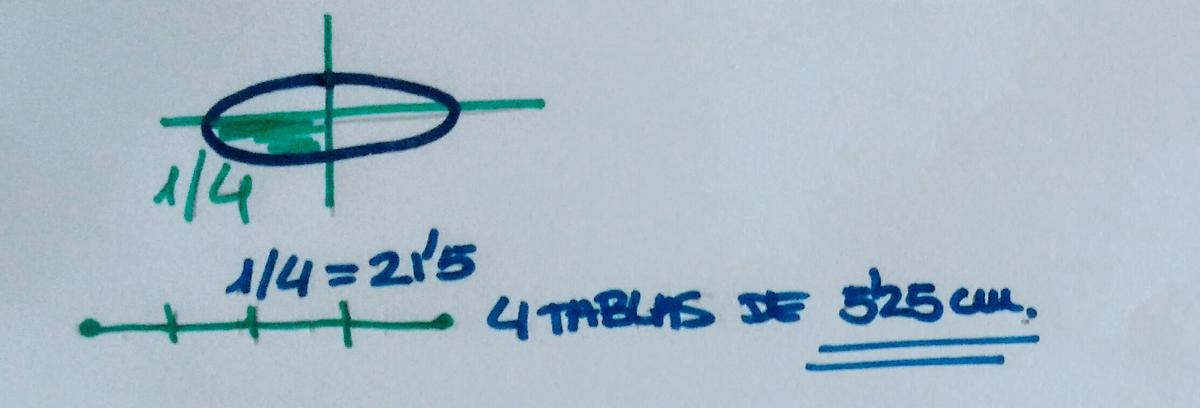 1/4
1/4 = 21'5
4 TABLAS DE 5'25 cm.